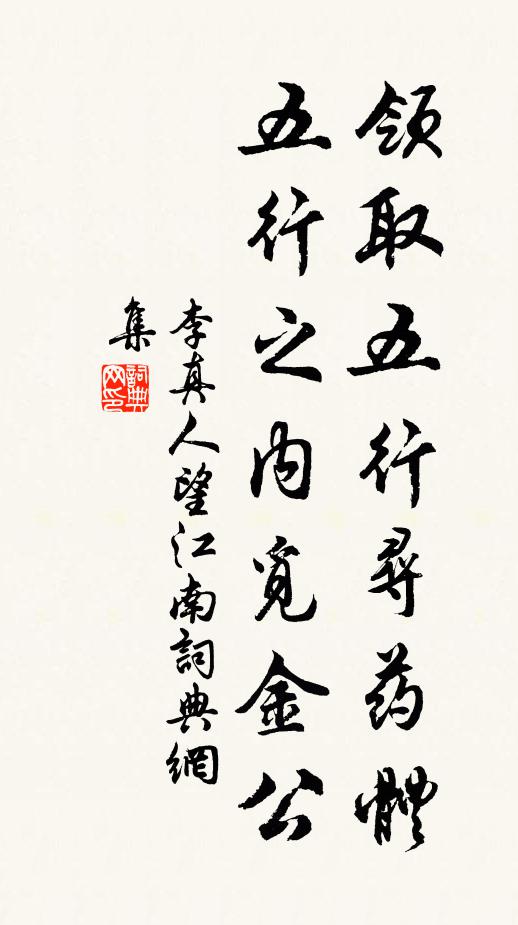 领取五行尋药體
五行之内覓金公
李真人望江南詞典網
集
詞典
网印